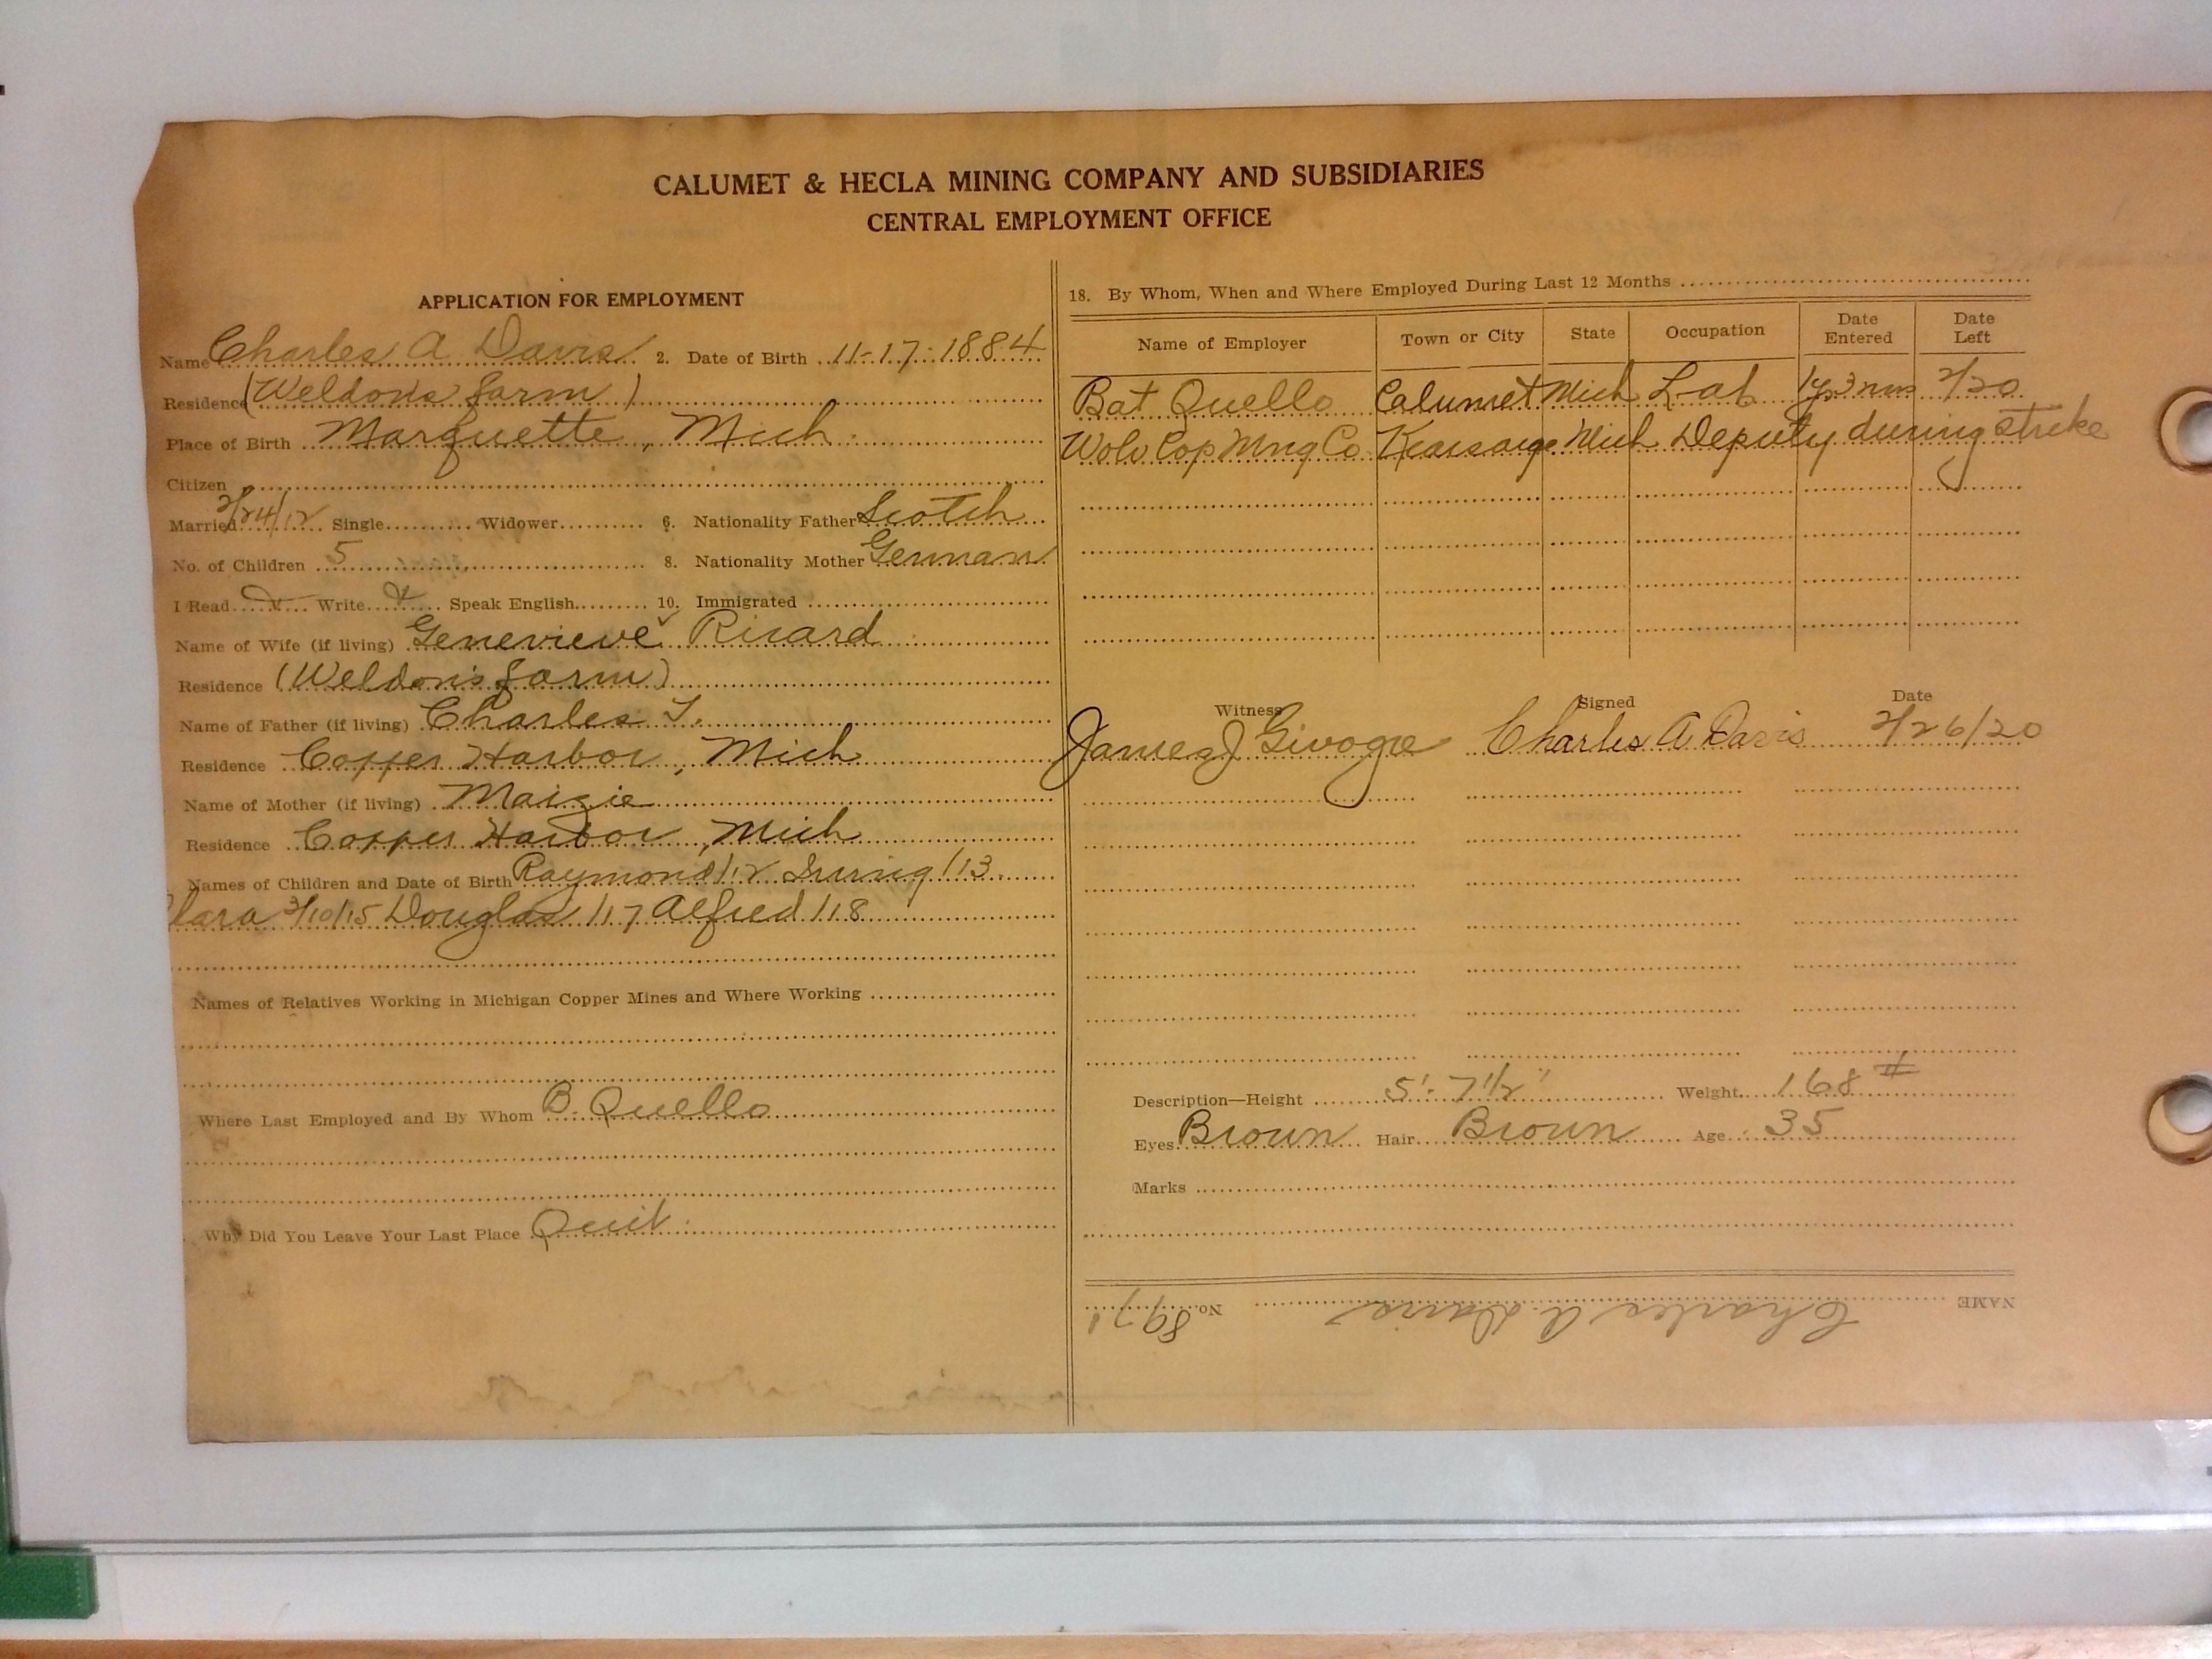 CALUMET & HECLA MINING COMPANY AND SUBSIDIARIES
CENTRAL EMPLOYMENT OFFICE
APPLICATION FOR EMPLOYMENT
Name Charles A Davis 2. Date of Birth 11-17-1884
Residence (Weldon's farm)
Place of Birth Marquette, Mich
Citizen
Married 2/24/12 Single Widower 6. Nationality Father Scotch
No. of Children 5 8. Nationality Mother German
I Read x Write x Speak English 10. Immigrated
Name of Wife (if living) Genevieve Ricard
Residence (Weldon's farm)
Name of Father (if living) Charles T.
Residence Copper Harbor, Mich
Name of Mother (if living) Maizie
Residence Copper Harbor, Mich
Names of Children and Date of Birth Raymond /12 Irving /13
Clara 3/10/15 Douglas /17 Alfred /18
Names of Relatives Working in Michigan Copper Mines and Where Working
Where Last Employed and By Whom B. Quello
Why Did You Leave Your Last Place Quit
18. By Whom, When and Where Employed During Last 12 Months
Name of Employer Town or City State Occupation Date Entered Date Left
Bat Quello Calumet Mich Lab 1yr 3 mos 2/20
Wolv Cop Mng Co Kearsarge Mich Deputy during strike
Witness Signed Date
James J Charles A Davis 2/26/20
Description—Height 5'-7 1/2" Weight 168 #
Eyes Brown Hair Brown Age 35
Marks
NAME Charles A. Davis No. 8971